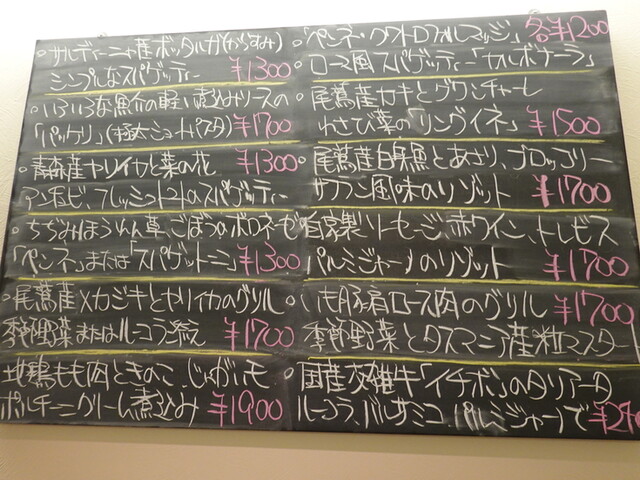 。サルディーニャ産ボッタルガ(からすみ)
シンプルなスパゲッティー ¥1300
。いろいろな魚介の軽い煮込みソースの
「パッケリ」(極太ショートパスタ) ¥1700
。青森産ヤリイカと菜の花 ¥1300
アンチョビ、フレッシュトマトのスパゲッティー
。ちぢみほうれん草、ごぼうのボロネーゼ
「ペンネ」または「スパゲットーニ」 ¥1300
。尾鷲産メカジキとヤリイカのグリル
季節野菜またはルーコラ添え ¥1700
。地鶏もも肉ときのこ、じゃがいも
ポルチーニクリーム煮込み ¥1900
。「ペンネ・クアトロフォルマッジ」 各¥1200
ローマ風スパゲッティー「カルボナーラ」
。尾鷲産カキとグアンチャーレ
わさび菜の「リングイネ」 ¥1500
。尾鷲産白身魚とあさり、ブロッコリー
サフラン風味のリゾット ¥1700
。自家製ソーセージ 赤ワイン、トレビス
パルミジャーノのリゾット ¥1700
。もち豚肩ロース肉のグリル ¥1700
季節野菜とタスマニア産粒マスタード
。国産交雑牛「イチボ」のタリアータ
ルーコラ、バルサミコ、パルミジャーノで